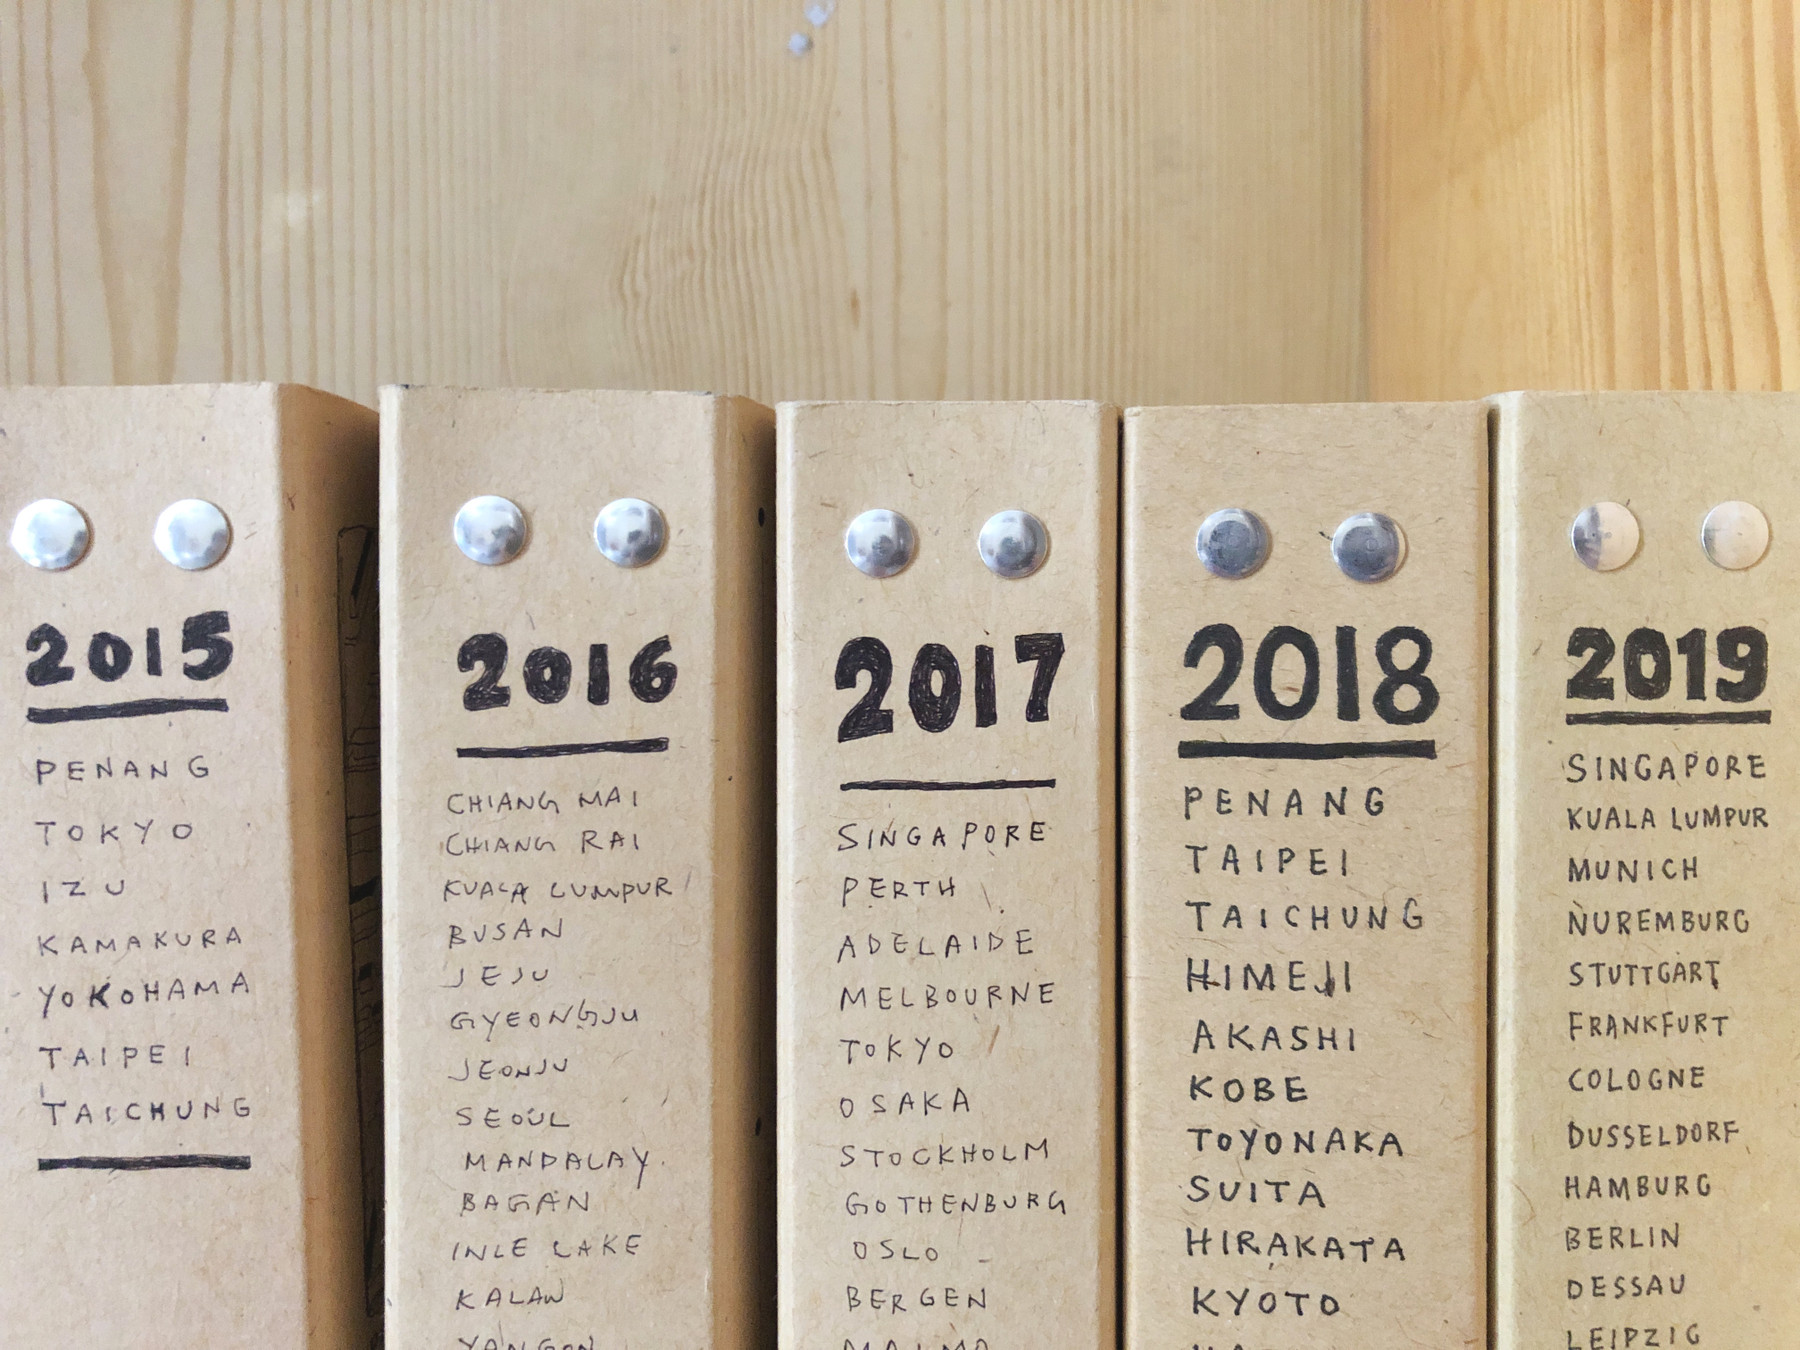 2015
PENANG
TOKYO
IZU
KAMAKURA
YOKOHAMA
TAIPEI
TAICHUNG
2016
CHIANG MAI
CHIANG RAI
KUALA LUMPUR
BUSAN
JEJU
GYEONGJU
JEONJU
SEOUL
MANDALAY
BAGAN
INLE LAKE
KALAW
YANGON
2017
SINGAPORE
PERTH
ADELAIDE
MELBOURNE
TOKYO
OSAKA
STOCKHOLM
GOTHENBURG
OSLO
BERGEN
MALMO
2018
PENANG
TAIPEI
TAICHUNG
HIMEJI
AKASHI
KOBE
TOYONAKA
SUITA
HIRAKATA
KYOTO
2019
SINGAPORE
KUALA LUMPUR
MUNICH
NUREMBURG
STUTTGART
FRANKFURT
COLOGNE
DUSSELDORF
HAMBURG
BERLIN
DESSAU
LEIPZIG